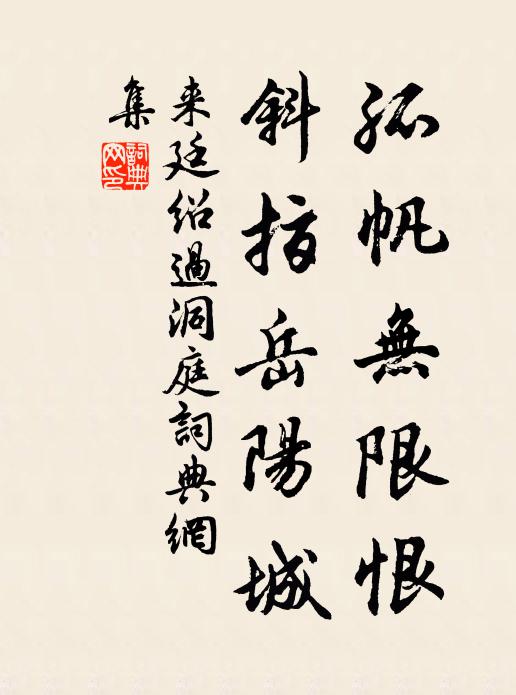 孤帆無限恨
斜指岳陽城
来廷绍過洞庭詞典網
集
詞典網印